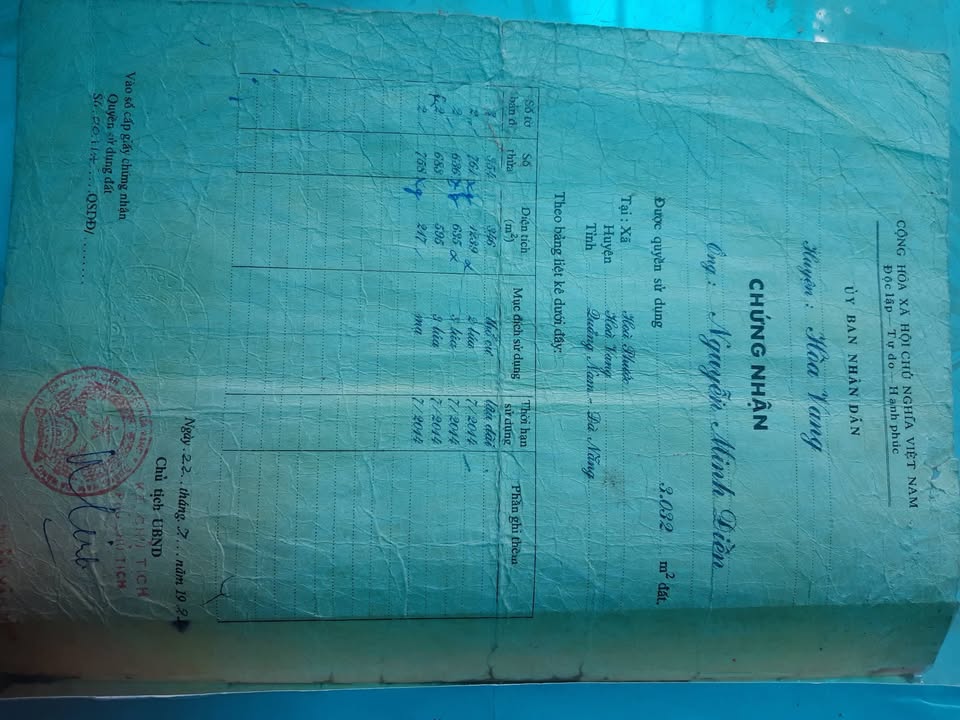 CỘNG HÒA XÃ HỘI CHỦ NGHĨA VIỆT NAM
Độc lập - Tự do - Hạnh phúc
ỦY BAN NHÂN DÂN
Huyện: Hòa Vang
CHỨNG NHẬN
Ông: Nguyễn Minh Diễn
Được quyền sử dụng 3.032 m² đất,
Tại: Xã Hoà Phước
Huyện Hoà Vang
Tỉnh Quảng Nam - Đà Nẵng
Theo bảng liệt kê dưới đây:
Số tờ bản đồ Số thửa Diện tích (m²) Mục đích sử dụng Thời hạn sử dụng Phần ghi thêm
346 lâu dài
2 761 1239 2 lúa 7/2014
2 636 635 3 lúa 7/2014
2 683 595 2 lúa 7/2014
2 758 217 mạ 7/2014
Ngày 22 tháng 7 năm 19
Chủ tịch UBND
KT CHỦ TỊCH
Vào sổ cấp giấy chứng nhận
Quyền sử dụng đất
QSDĐ/